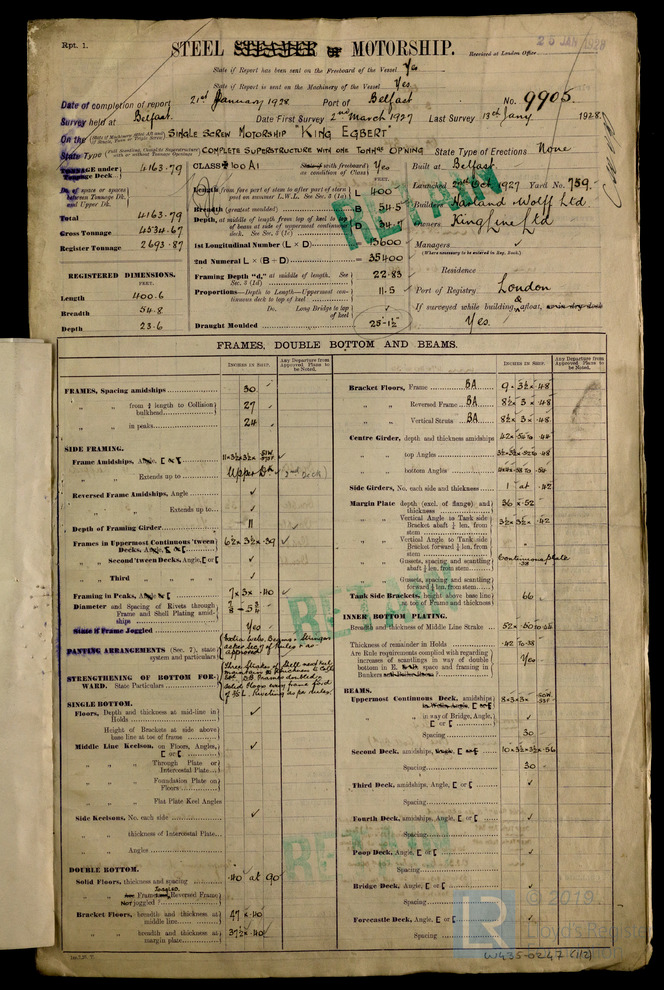 Rpt. 1.
25 JAN 1928
STEEL STEAMER OR MOTORSHIP.
Received at London Office
State if Report has been sent on the Freeboard of the Vessel Yes
State if Report is sent on the Machinery of the Vessel Yes
Date of completion of report 21st January 1928 Port of Belfast No. 9905.
Survey held at Belfast. Date First Survey 2nd March 1927 Last Survey 13th Jany 1928.
On the SINGLE SCREW MOTORSHIP "KING EGBERT"
State Type COMPLETE SUPERSTRUCTURE WITH ONE TONNGE OPNING State Type of Erections None
TONNAGE under Tonnage Deck 4163.79
Do. of space or spaces between Tonnage Dk. and Upper Dk.
Total 4163.79
Gross Tonnage 4534.67
Register Tonnage 2693.87
REGISTERED DIMENSIONS.
FEET.
Length 400.6
Breadth 54.8
Depth 23.6
CLASS 100 A1
State if with freeboard as condition of Class Yes
FEET.
Length from fore part of stem to after part of stern post on summer L.W.L. See Sec. 3 (1a) L 400
Breadth (greatest moulded) B 54.5
Depth, at middle of length from top of keel to top of beams at side of uppermost continuous deck. See Sec. 3 (1c) D
1st Longitudinal Number (L × D) = 13600
2nd Numeral L × (B + D) = 35400
Framing Depth "d," at middle of length. See Sec. 3 (1d) 22.83
Proportions—Depth to Length—Uppermost continuous deck to top of keel 11.5
Do. Long Bridge to top of keel
Draught Moulded 25-1½
Built at Belfast.
Launched Oct. 1927 Yard No. 759.
Builders Harland & Wolff Ltd.
Owners King Line Ltd
Managers
(Where necessary to be entered in Reg. Book.)
Residence
Port of Registry London
If surveyed while building, & afloat, or in dry dock
Yes.
RETAIN
FRAMES, DOUBLE BOTTOM AND BEAMS.
INCHES IN SHIP.
Any Departure from Approved Plans to be Noted.
FRAMES, Spacing amidships 30
" " from ⅕ length to Collision bulkhead 27
" " in peaks 24
SIDE FRAMING.
Frame Amidships, Angle, [ or [
" " Extends up to Upper Dk (2nd Deck)
Reversed Frame Amidships, Angle
" " " Extends up to
Depth of Framing Girder 11
Frames in Uppermost Continuous 'tween Decks, Angle, [ or [ 6½ x 3½ x .39
" " Second 'tween Decks, Angle, [ or [
" " Third " " " "
Framing in Peaks, Angle or [ 7 x 3 x .40
Diameter and Spacing of Rivets through Frame and Shell Plating amidships
State if Frame Joggled Yes
PANTING ARRANGEMENTS (Sec. 7), state system and particulars
STRENGTHENING OF BOTTOM FORWARD. State Particulars
SINGLE BOTTOM.
Floors, Depth and thickness at mid-line in Holds
" Height of Brackets at side above base line at toe of frame
Middle Line Keelson, on Floors, Angles, [ or [
" " " Through Plate or Intercostal Plate
" " " Foundation Plate on Floors
" " " Flat Plate Keel Angles
Side Keelsons, No. each side
" " thickness of Intercostal Plate
" " Angles
DOUBLE BOTTOM.
Solid Floors, thickness and spacing .40 at 90
Joggled
" " Are Frame and Reversed Frame joggled?
Not
Bracket Floors, breadth and thickness at middle line 47 x .40
" " breadth and thickness at margin plate 37½ x .40
Bracket Floors, Frame BA 9 x 3½ x .48
" " Reversed Frame BA 8½ x 3 x .48
" " Vertical Struts BA 8½ x 3 x .48
Centre Girder, depth and thickness amidships
" " top Angles
" " bottom Angles
Side Girders, No. each side and thickness 1 at .42
Margin Plate depth (excl. of flange) and thickness 36 x .52
" " Vertical Angle to Tank side Bracket abaft ¼ len. from stem 3½ x 3½ x .42
" " Vertical Angle to Tank side Bracket forward ¼ len. from stem
" " Gussets, spacing and scantling abaft ¼ len. from stem Continuous plate
" " Gussets, spacing and scantling forward ¼ len. from stem
Tank Side Brackets, height above base line at toe of Frame and thickness 66
INNER BOTTOM PLATING.
Breadth and thickness of Middle Line Strake
Thickness of remainder in Holds .42 to .38
Are Rule requirements complied with regarding increases of scantlings in way of double bottom in E. space and framing in Bunkers Yes
BEAMS.
Uppermost Continuous Deck, amidships
" " in way of Bridge, Angle, [ or [
Spacing 30
Second Deck, amidships, Angle, [ or [ 10 x 3½ x 3½ x .56
Spacing 30
Third Deck, amidships, Angle, [ or [
Spacing
Fourth Deck, amidships, Angle, [ or [
Spacing
Poop Deck, Angle, [ or [
Spacing
Bridge Deck, Angle, [ or [
Spacing
Forecastle Deck, Angle, [ or [
Spacing
RETAIN
RETAIN
LR
© 2019
Lloyd's Register
Foundation
W435-0247 (1/2)